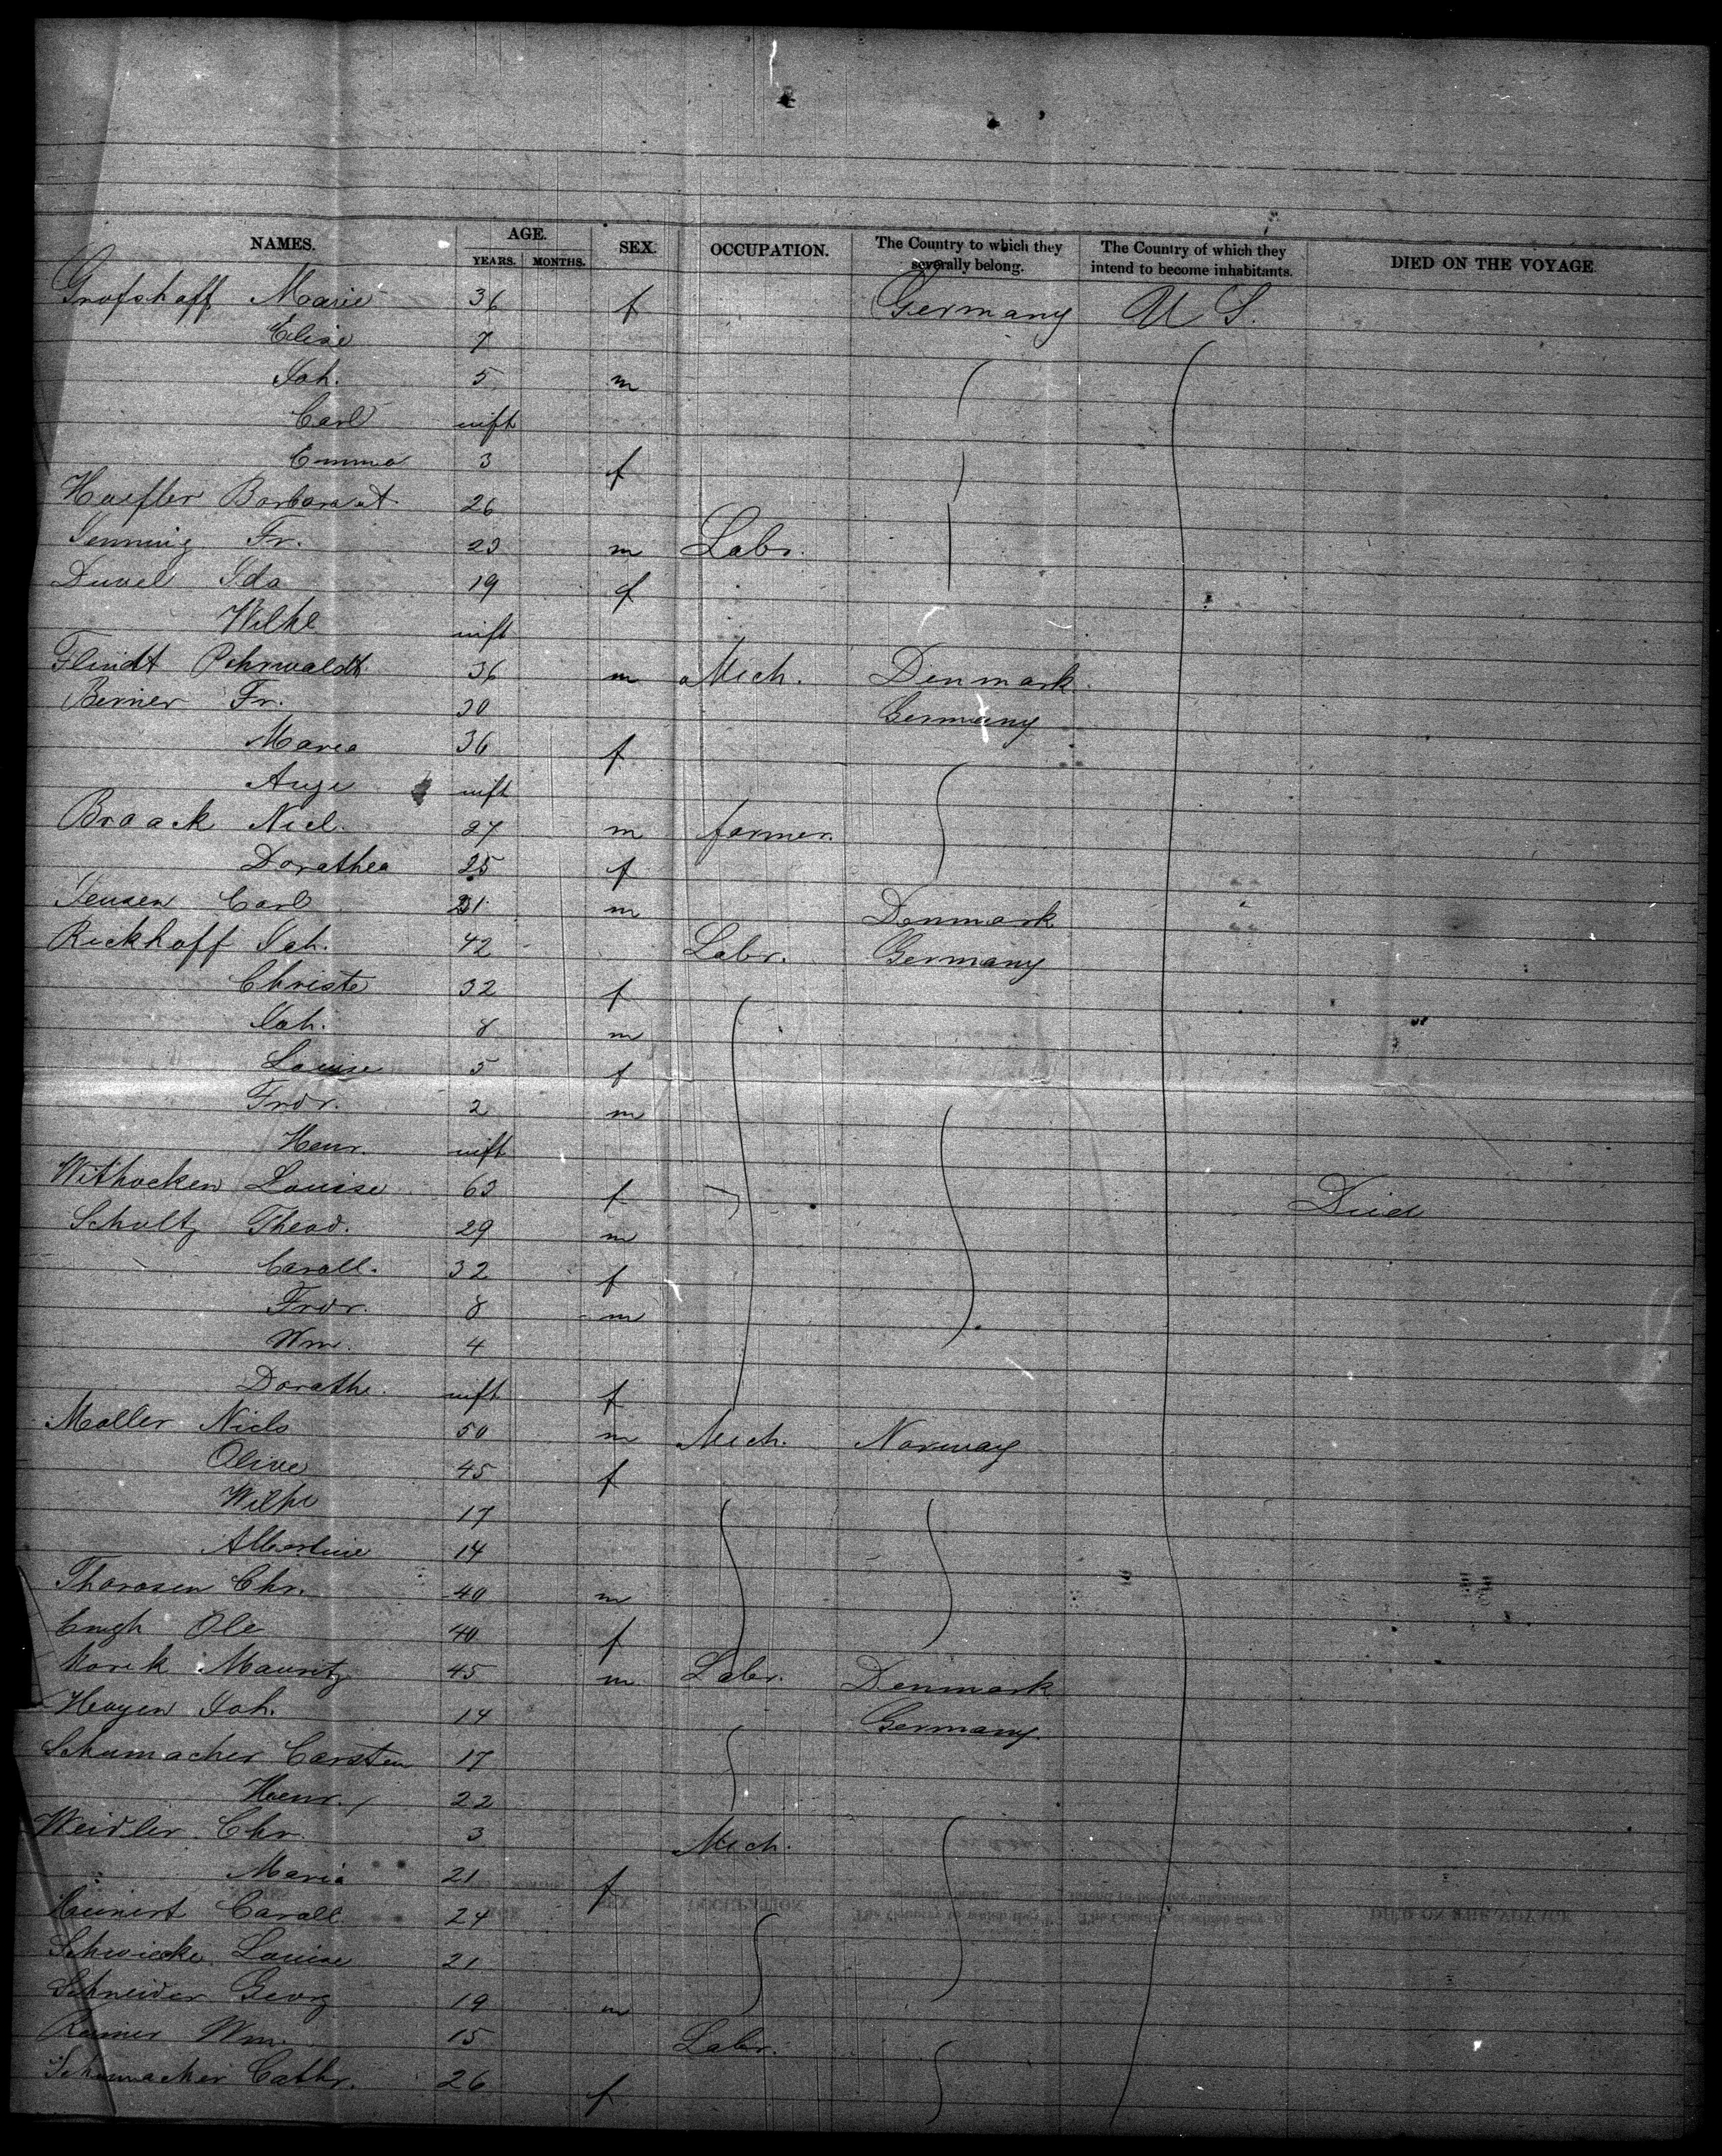 NAMES. AGE. SEX. OCCUPATION. The Country to which they severally belong. The Country of which they intend to become inhabitants. DIED ON THE VOYAGE.
YEARS. MONTHS.
Grofshoff Marie 36 f Germany U S.
Elise 7
Joh. 5 m
Carl inft
Emma 3 f
Haefler Barbara 26
Jenning Fr. 23 m Labr.
Duvel Ida 19 f
Wilhl inft
Flindt 36 m Mech. Denmark
Berner Fr. 30 Germany
Maria 36 f
Auge inft
Braack Nicl. 27 m farmer.
Dorathea 25 f
Jensen Carl 21 m Denmark
Rickhoff Joh. 42 Labr. Germany
Christe 32 f
Joh. 8 m
Louise 5 f
Frdr. 2 m
Henr. inft
Withocken Louise 63 f Died
Schultz Theod. 29 m
Caroll. 32 f
Frdr. 8 m
Wm. 4
Dorathe. inft f
Moller Niels 50 m Mech. Norway
Olive 45 f
Wilhe 17
Albertine 14
Thorosen Chr. 40 m
Engh Ole 40 f
Marek Mauritz 45 m Labr. Denmark
Heyen Joh. 14 Germany
Schumacher Carsten 17
Henr. 22
Weidler Chr. 3 Mech.
Maria 21 f
Heinert Caroll 24
Schwicke Louise 21
Schneider Georg 19 m
Reiner Wm. 15 Labr.
Schumacher Cathr. 26 f